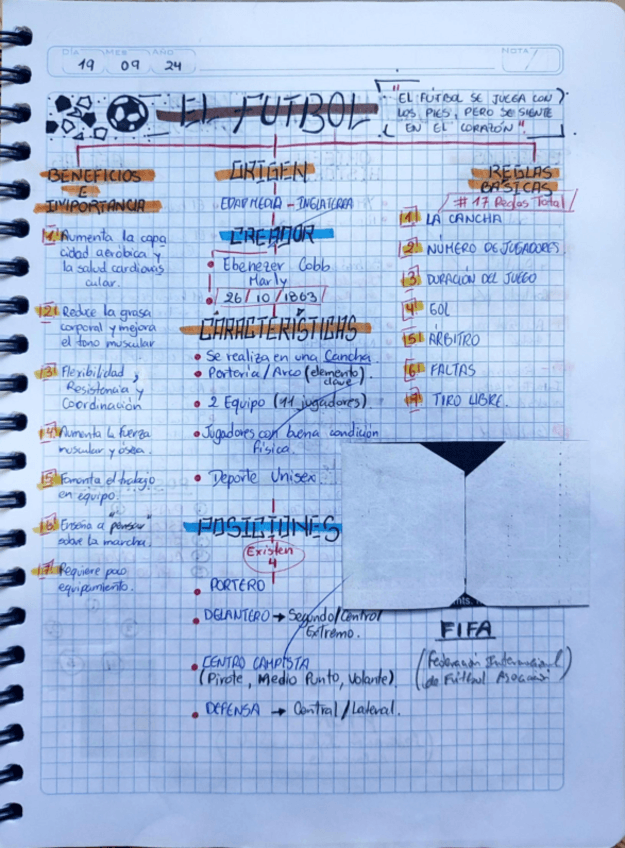 DÍA MES AÑO
19 09 24
NOTA
EL FUTBOL
"EL FÚTBOL SE JUEGA CON
LOS PIES, PERO SE SIENTE
EN EL CORAZÓN"
BENEFICIOS
E
IMPORTANCIA
1 Aumenta la capa
cidad aeróbica y
la salud cardiovas
cular.
2 Reduce la grasa
corporal y mejora
el tono muscular
3 Flexibilidad,
Resistencia y
Coordinación
4 Aumenta la fuerza
muscular y ósea.
5 Fomenta el trabajo
en equipo
6 Enseña a "pensar"
sobre la marcha.
7 Requiere poco
equipamiento.
ORIGEN
EDAD MEDIA - INGLATERRA
CREADOR
Ebenezer Cobb
Morly
26/10/1863
CARACTERÍSTICAS
Se realiza en una Cancha.
Portería/Arco (elemento
clave).
2 Equipo (11 jugadores).
Jugadores con buena condición
Física.
Deporte Unisex.
POSICIONES
Existen
4
PORTERO
DELANTERO → Segundo/Central
Extremo.
CENTRO CAMPISTA
(Pivote, Medio Punto, Volante).
DEFENSA → Central/Lateral.
REGLAS
BÁSICAS
# 17 Reglas Total
1 LA CANCHA
2 NÚMERO DE JUGADORES
3 DURACIÓN DEL JUEGO
4 GOL
5 ÁRBITRO
6 FALTAS
7 TIRO LIBRE.
FIFA
(Federación Internacional
de Fútbol Asociación)